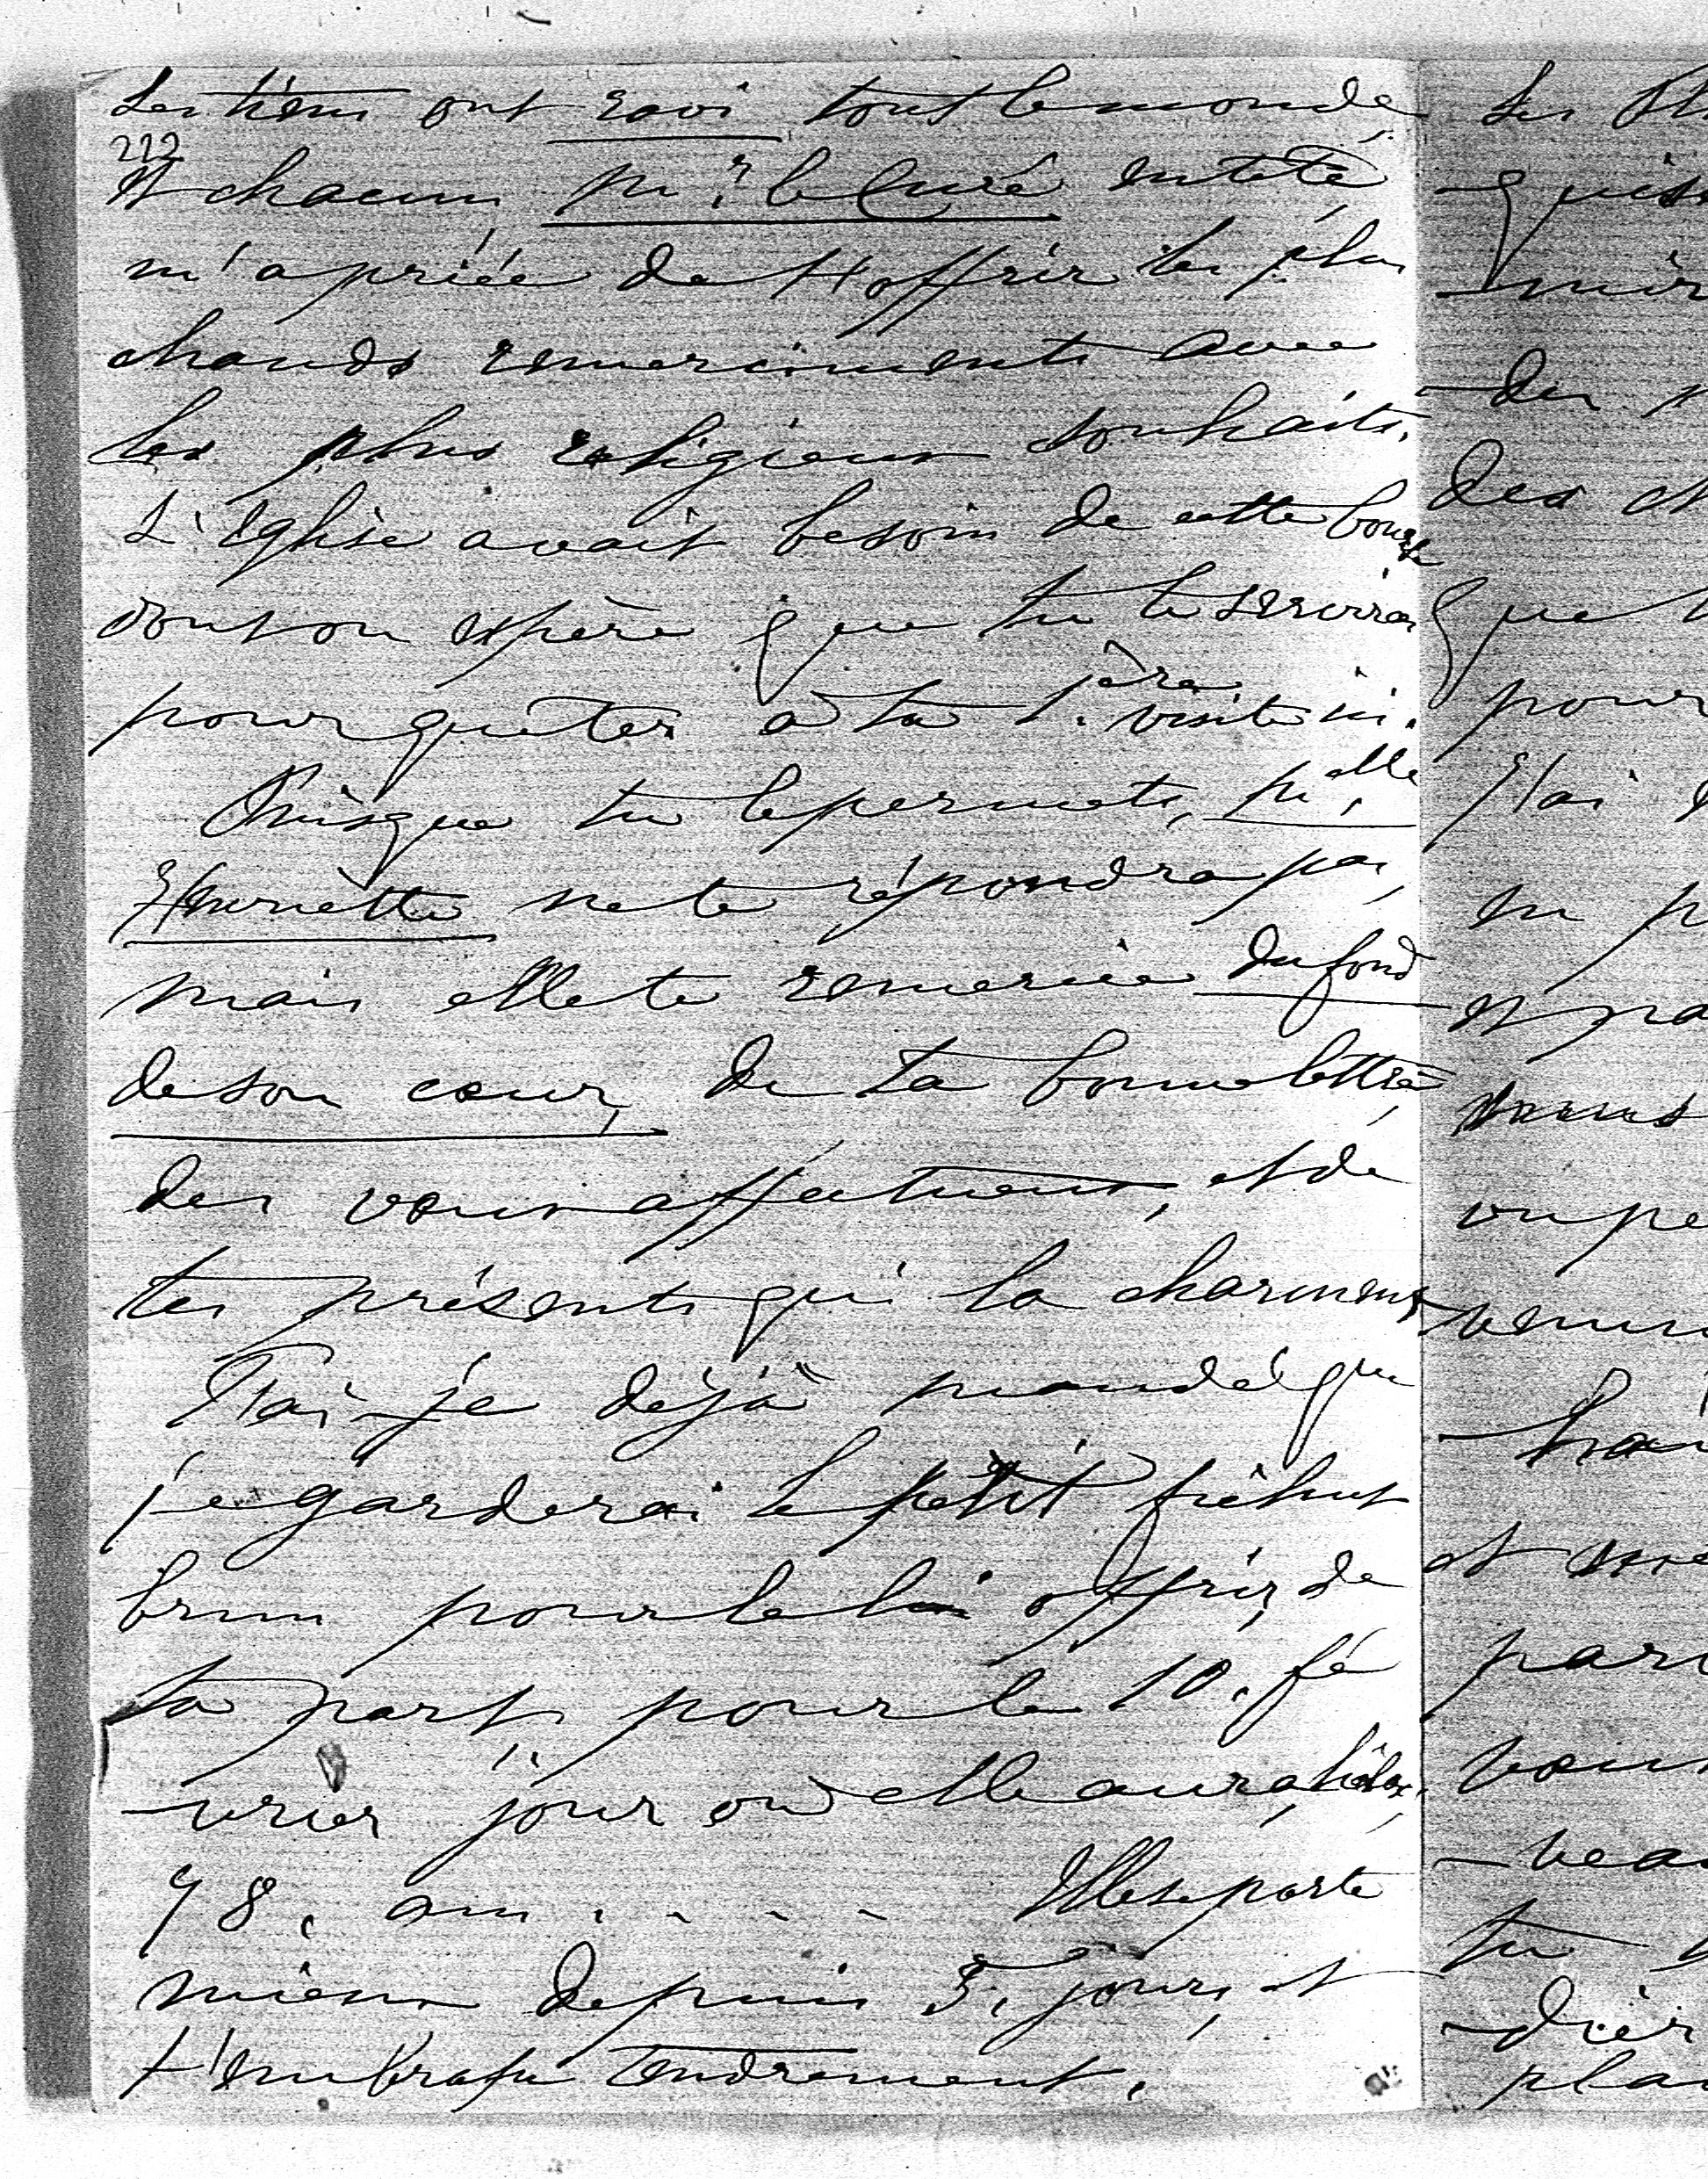 Les tiens ont ravi tout le monde,
212
et chacun, Mr. le Curé en tête,
m'a priée de t'offrir les plus
chauds remerciments avec
les plus religieux souhaits.
L'Église avait besoin de cette bourse
dont on espère que tu te serviras
pour quêter à ta 1ère visite ici.
Puisque tu le permets, Melle
Henriette ne te répondra pas,
mais elle te remercie du fond
de son cœur, de ta bonne lettre,
des vœux affectueux, et de
tes présents qui la charment
T'ai-je déjà mandé que
je garderai le petit fichu
brun pour le lui offrir, de
ta part, pour le 10. fé
-vrier jour où elle aura,
78. ans . . . . Elle se porte
mieux depuis 3. jours, et
t'embrasse tendrement.